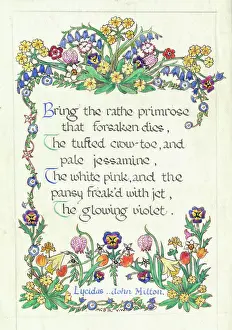 Bring the rathe primrose
that forsaken dies,
The tufted crow-toe, and
pale jessamine,
The white pink, and the
pansy freak'd with jet,
The glowing violet.
Lycidas .. John Milton.